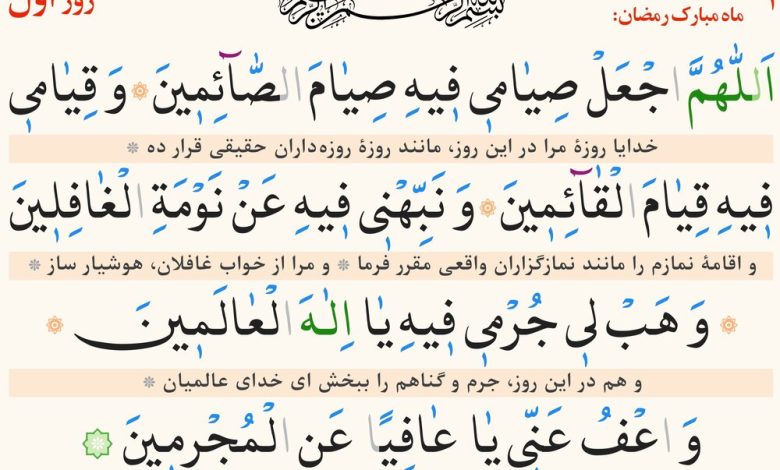 ۱ ماه مبارک رمضان: روز اول
اَللّٰهُمَّ اجْعَلْ صِيٰامي فيهِ صِيٰامَ الصّٰآئِمينَ وَ قِيٰامي
خدایا روزهٔ مرا در این روز، مانند روزهٔ روزه‌داران حقیقی قرار ده
فيهِ قِيٰامَ الْقٰآئِمينَ وَ نَبِّهْني فيهِ عَنْ نَوْمَةِ الْغٰافِلينَ
و اقامهٔ نمازم را مانند نمازگزاران واقعی مقرر فرما * و مرا از خواب غافلان، هوشیار ساز
وَ هَبْ لي جُرْمي فيهِ يٰا اِلٰهَ الْعٰالَمينَ
و هم در این روز، جرم و گناهم را ببخش ای خدای عالمیان
وَ اعْفُ عَنّي يٰا عٰافِيًا عَنِ الْمُجْرِمينَ